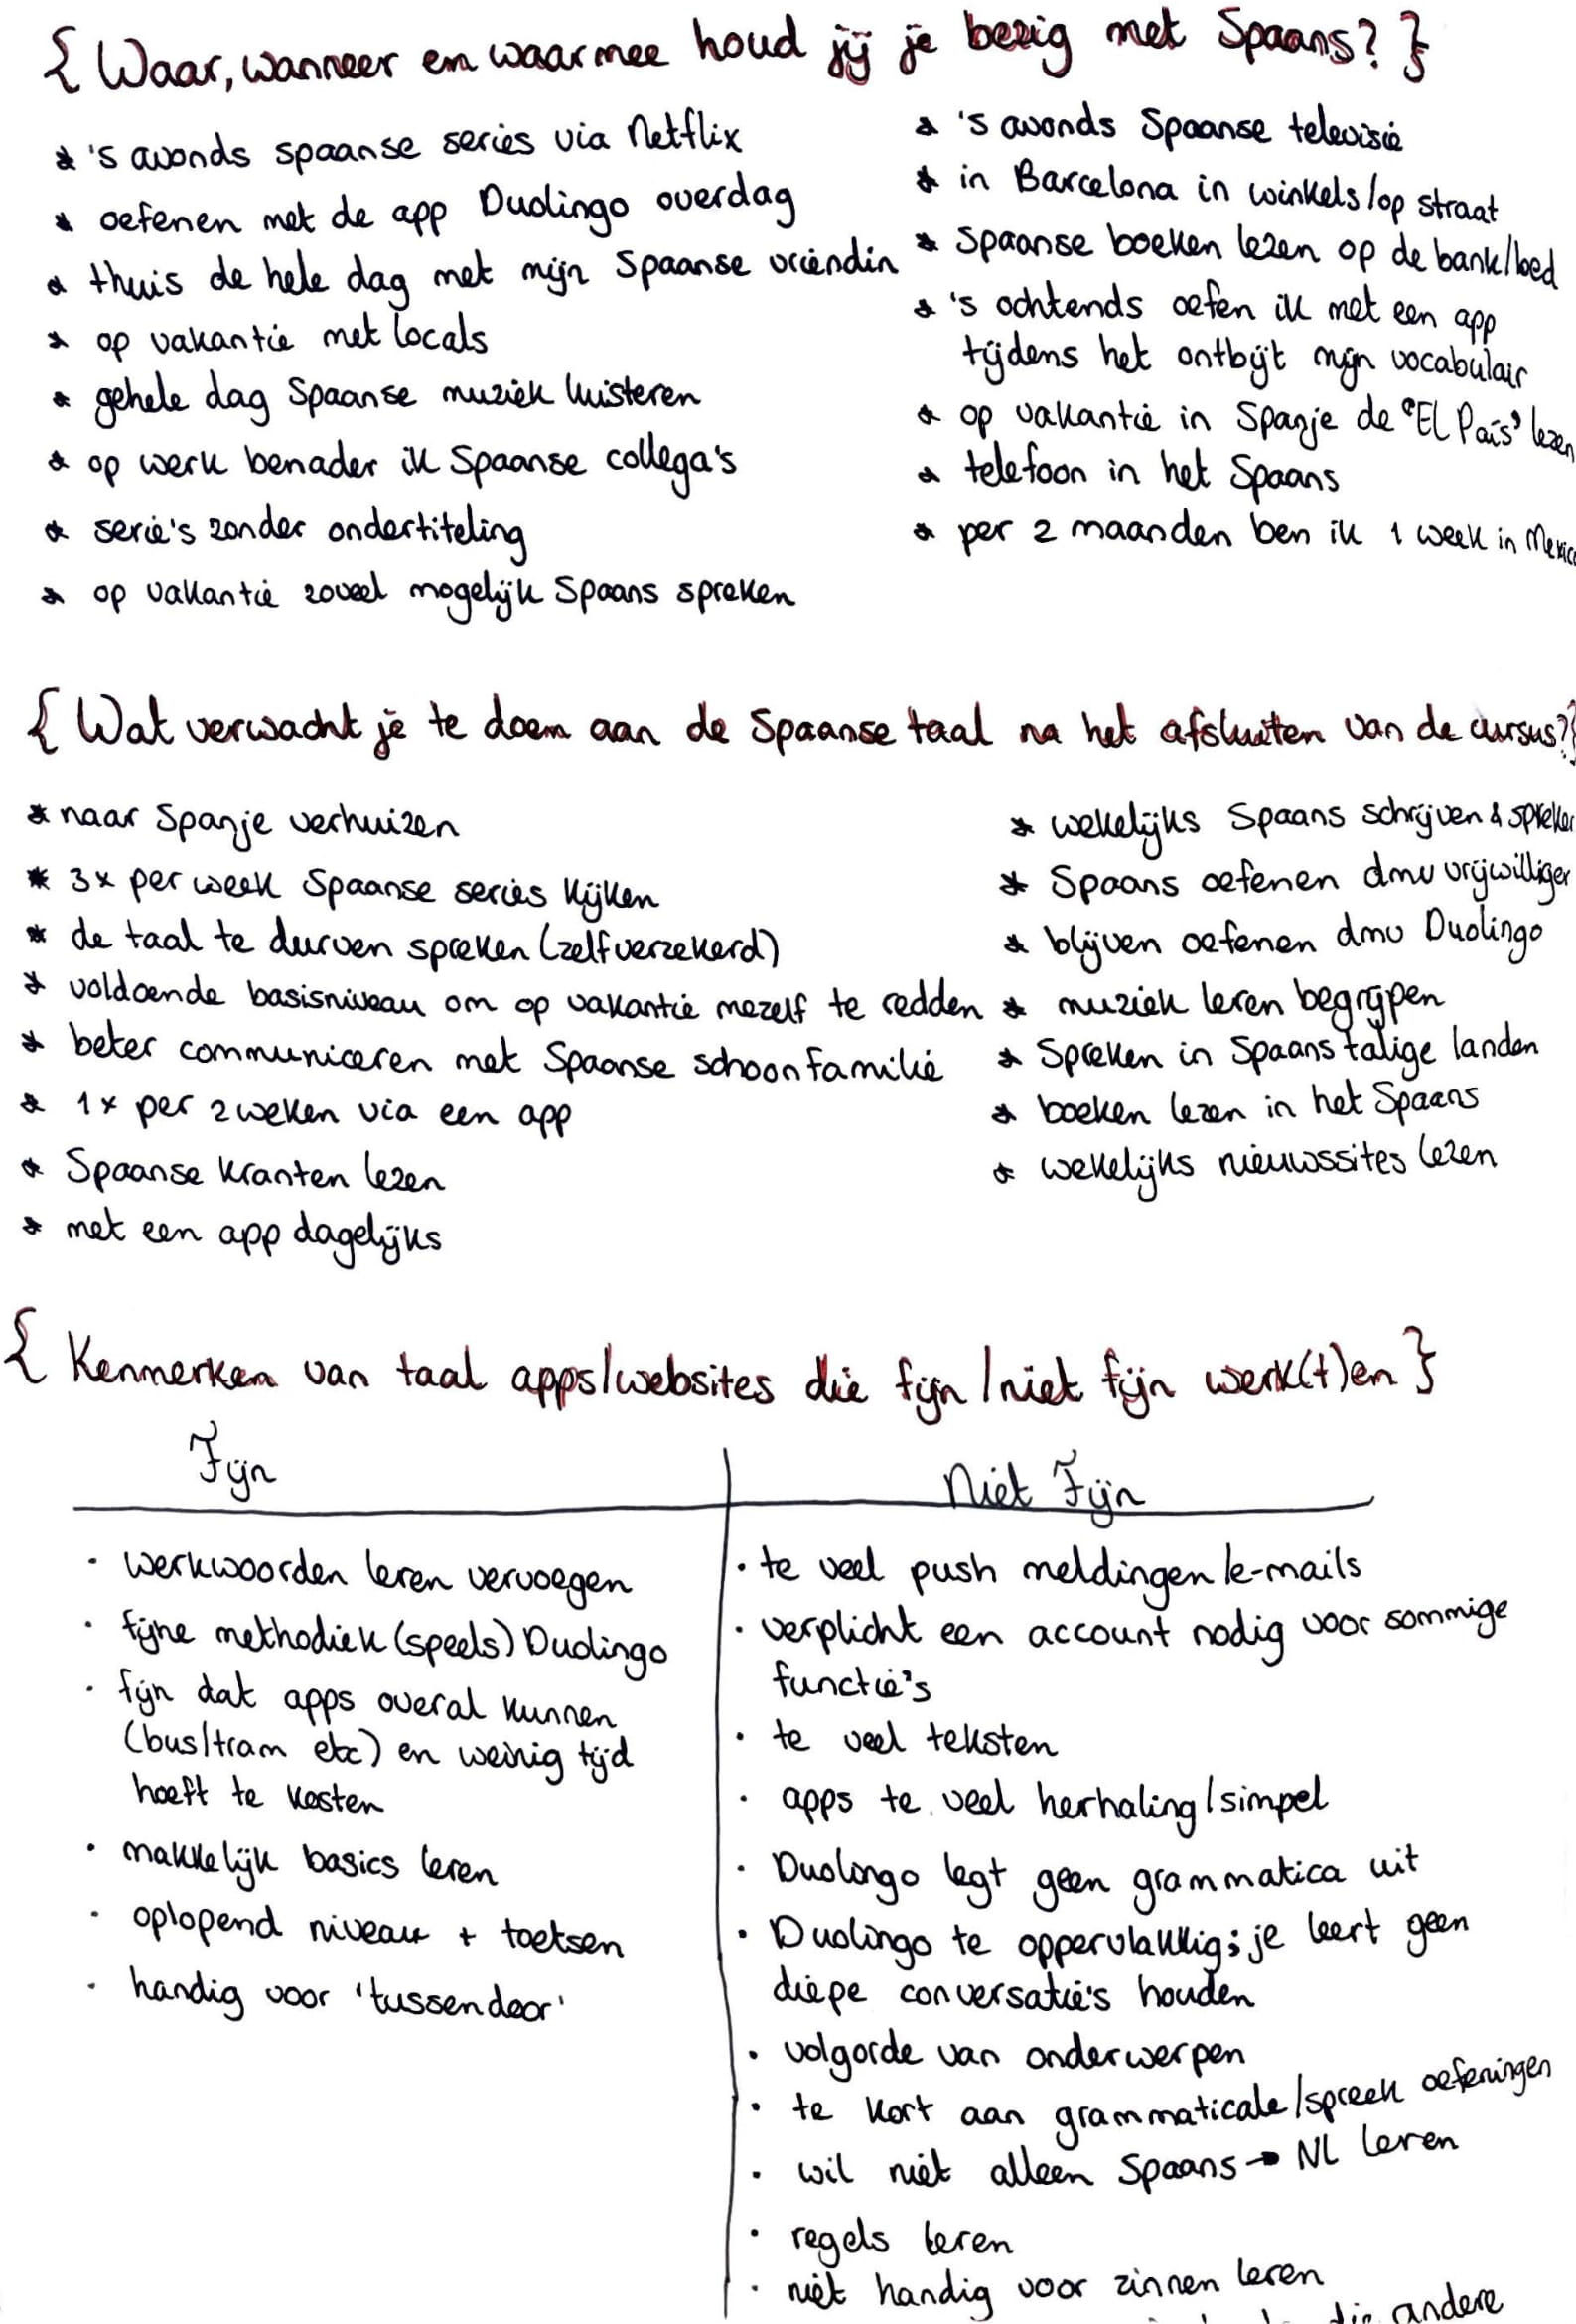 { Waar, wanneer en waarmee houd jij je bezig met Spaans? }
* 's avonds spaanse series via Netflix
* oefenen met de app Duolingo overdag
* thuis de hele dag met mijn Spaanse vriendin
* op vakantie met locals
* gehele dag Spaanse muziek luisteren
* op werk benader ik Spaanse collega's
* serie's zonder ondertiteling
* op vakantie zoveel mogelijk Spaans spreken
* 's avonds Spaanse televisie
* in Barcelona in winkels/op straat
* Spaanse boeken lezen op de bank/bed
* 's ochtends oefen ik met een app
tijdens het ontbijt mijn vocabulair
* op vakantie in Spanje de "El País" lezen
* telefoon in het Spaans
* per 2 maanden ben ik 1 week in Mexico
{ Wat verwacht je te doen aan de Spaanse taal na het afsluiten van de cursus? }
* naar Spanje verhuizen
* 3x per week Spaanse series kijken
* de taal te durven spreken (zelfverzekerd)
* voldoende basisniveau om op vakantie mezelf te redden
* beter communiceren met Spaanse schoonfamilie
* 1x per 2 weken via een app
* Spaanse kranten lezen
* met een app dagelijks
* wekelijks Spaans schrijven & spreken
* Spaans oefenen dmv vrijwilliger
* blijven oefenen dmv Duolingo
* muziek leren begrijpen
* Spreken in Spaanstalige landen
* boeken lezen in het Spaans
* wekelijks nieuwssites lezen
{ Kenmerken van taal apps/websites die fijn/niet fijn werk(t)en }
Fijn
· werkwoorden leren vervoegen
· fijne methodiek (speels) Duolingo
· fijn dat apps overal kunnen
(bus/tram etc) en weinig tijd
hoeft te kosten
· makkelijk basics leren
· oplopend niveau + toetsen
· handig voor 'tussendoor'
Niet Fijn
· te veel push meldingen/e-mails
· verplicht een account nodig voor sommige
functie's
· te veel teksten
· apps te veel herhaling/simpel
· Duolingo legt geen grammatica uit
· Duolingo te oppervlakkig; je leert geen
diepe conversatie's houden
· volgorde van onderwerpen
· te kort aan grammaticale/spreek oefeningen
· wil niet alleen Spaans → NL leren
· regels leren
· niet handig voor zinnen leren
die andere